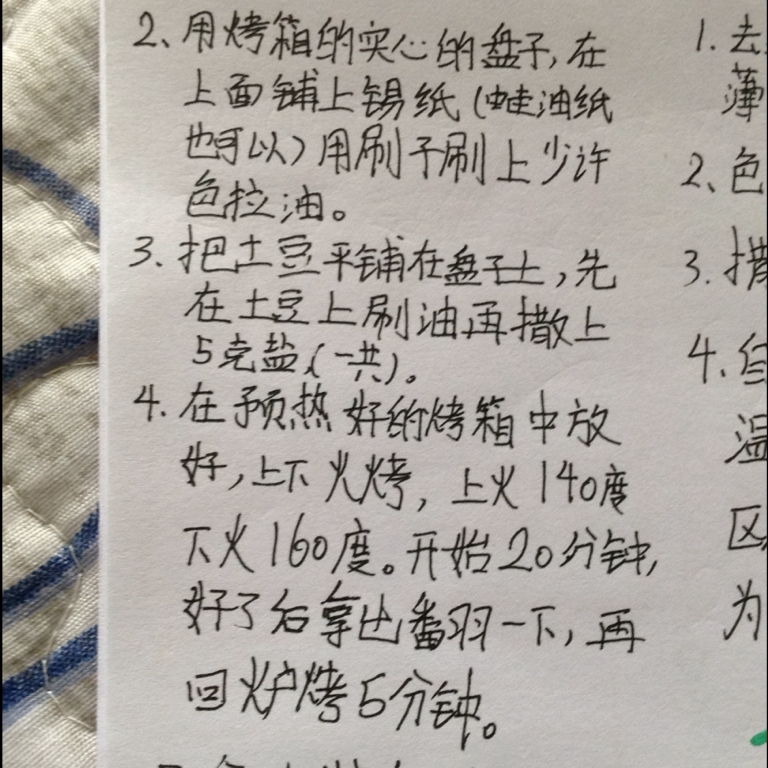 2、用烤箱的实心的盘子,在
上面铺上锡纸(蛙油纸
也可以)用刷子刷上少许
色拉油。
3.把土豆平铺在盘子上,先
在土豆上刷油再撒上
5克盐(一共)。
4.在预热好的烤箱中放
好,上下火烤,上火140度
下火160度。开始20分钟,
好了后拿出番羽一下,再
回炉烤5分钟。
1.去
薄
2、色
3.撒
4.
温
区
为